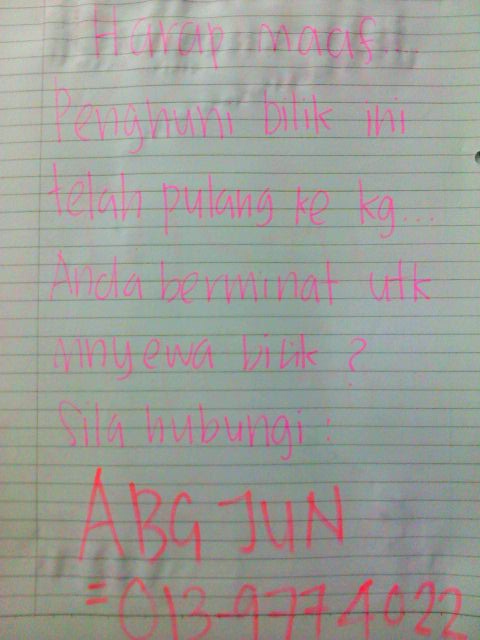 Harap maaf...
Penghuni bilik ini
telah pulang ke kg...
Anda berminat utk
mnyewa bilik ?
Sila hubungi :
ABG JUN
= 013-9774022